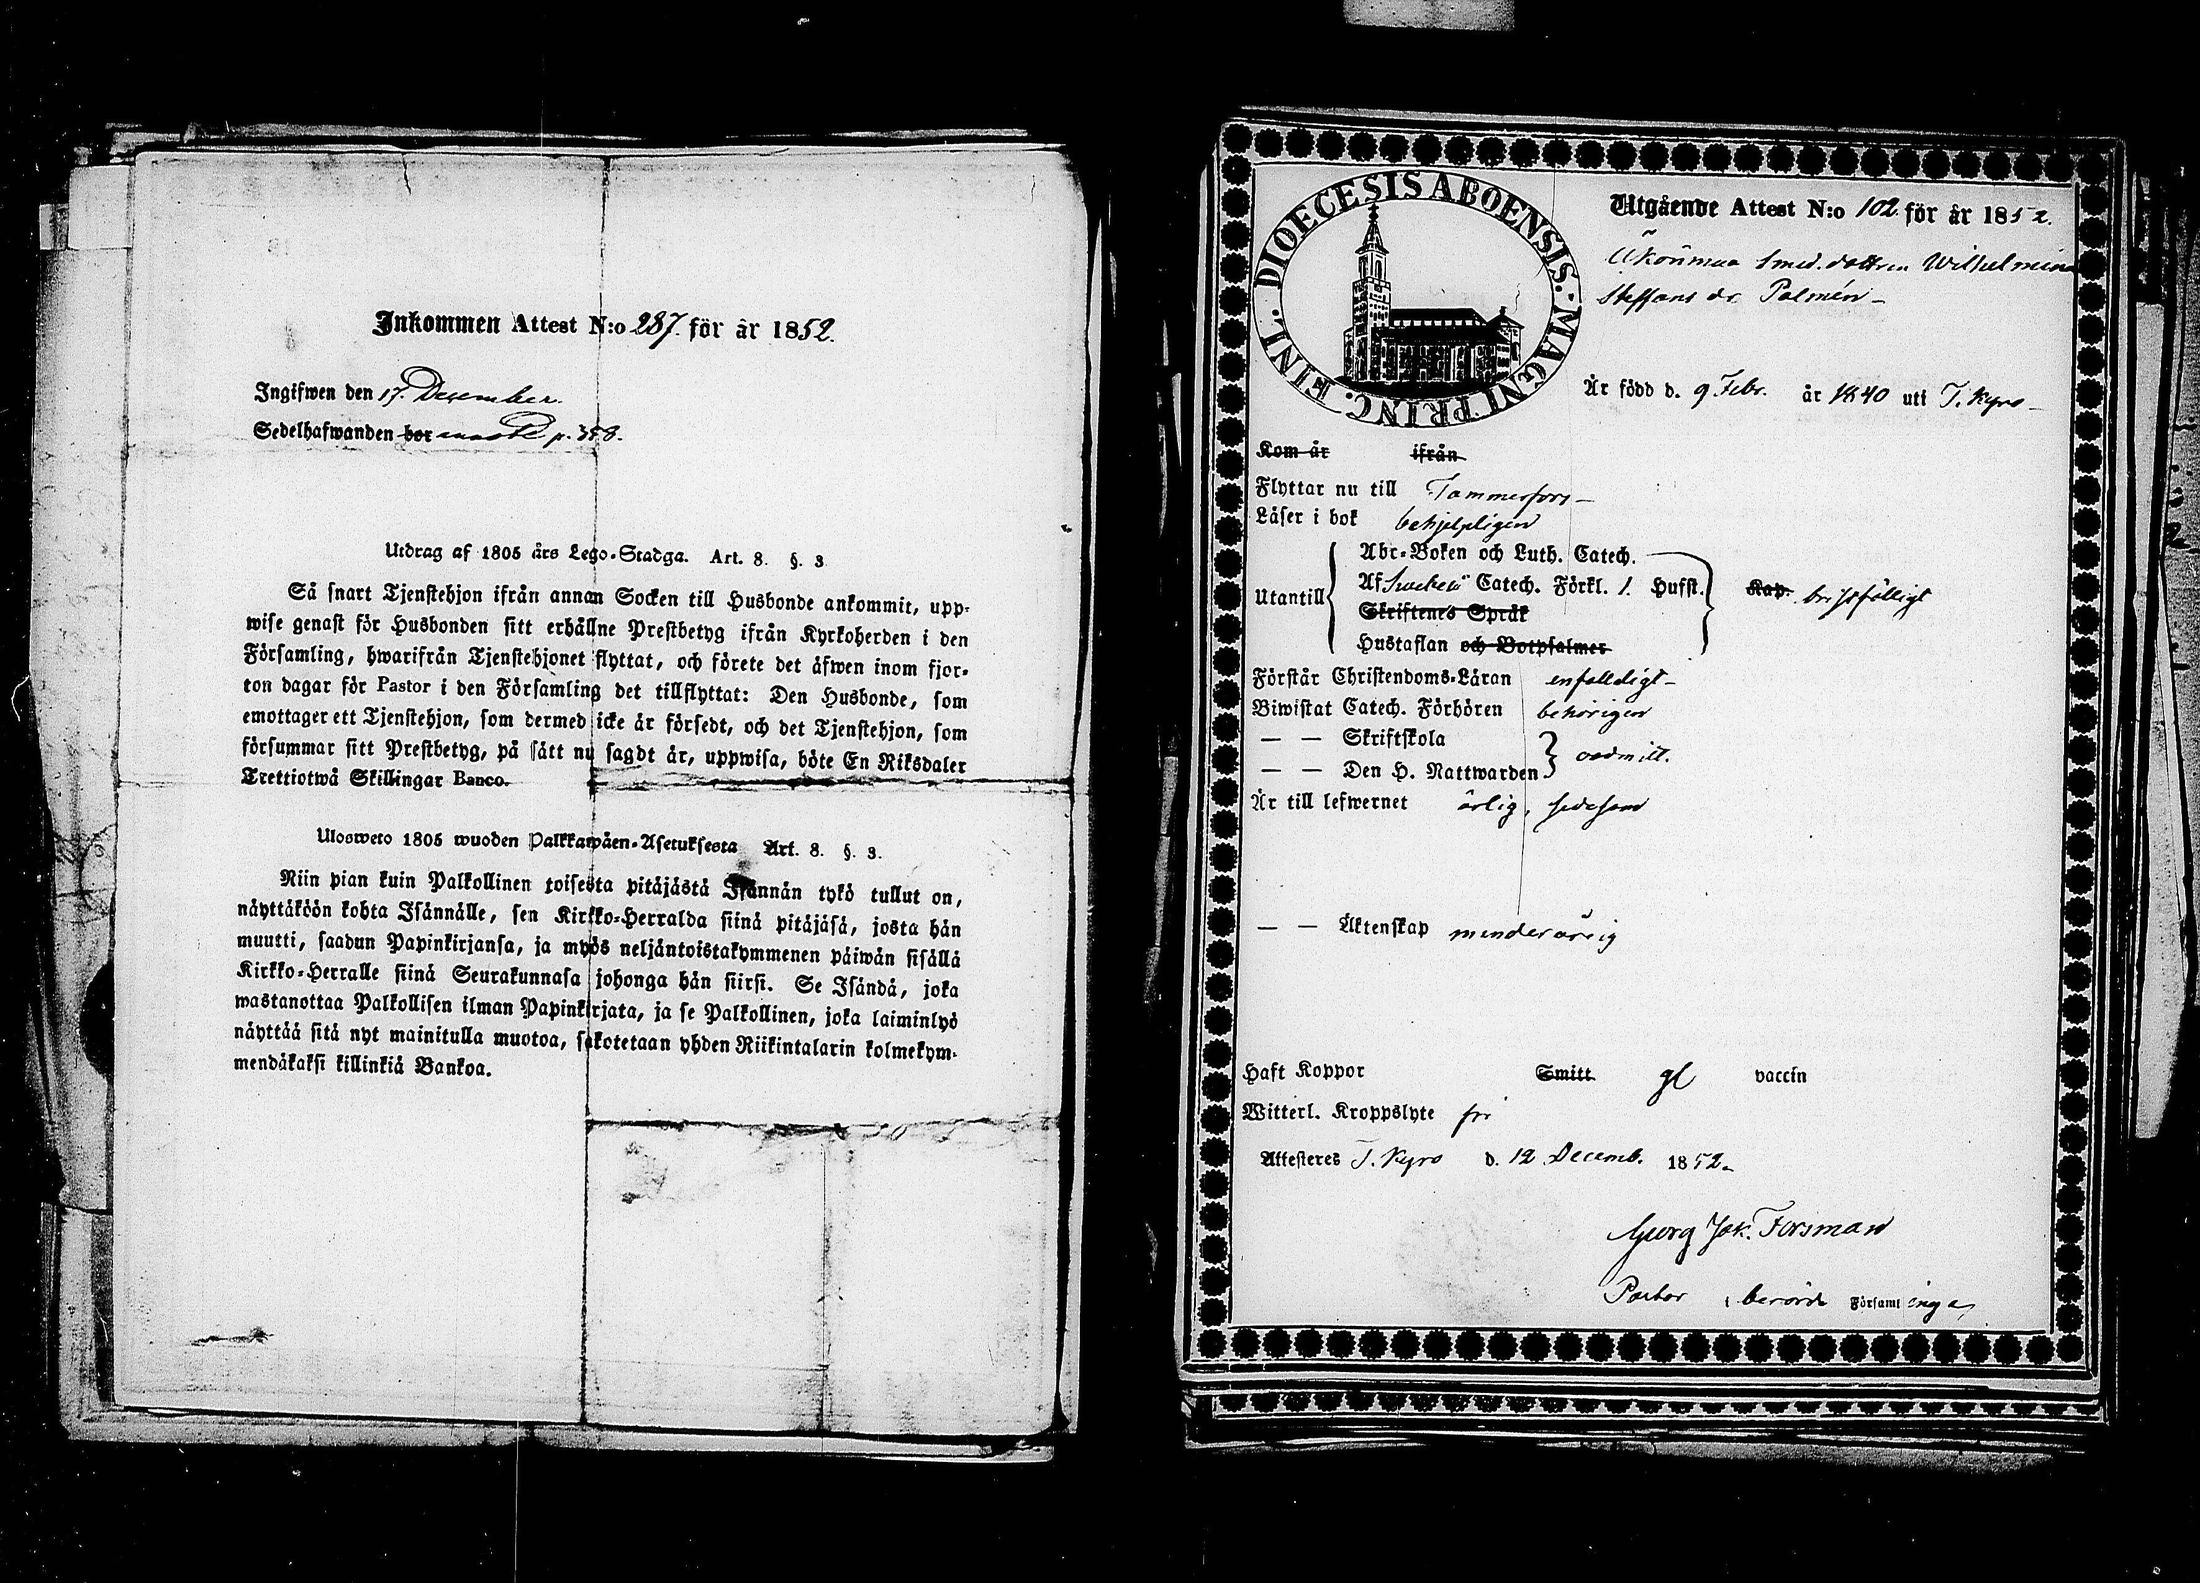 Inkommen Attest N:o 287. för år 1852.
Ingifwen den 17. December.
Sedelhafwanden bor p. 358.
Utdrag af 1805 års Lego-Stadga. Art. 8. §. 3
Så snart Tjenstehjon ifrån annan Socken till Husbonde ankommit, upp-
wise genast för Husbonden sitt erhållne Prestbetyg ifrån Kyrkoherden i den
Församling, hwarifrån Tjenstehjonet flyttat, och förete det äfwen inom fjor-
ton dagar för Pastor i den Församling det tillflyttat: Den Husbonde, som
emottager ett Tjenstehjon, som dermed icke är försedt, och det Tjenstehjon, som
försummar sitt Prestbetyg, på sätt nu sagdt är, uppwisa, böte En Riksdaler
Trettiotwå Skillingar Banco.
Ulosweto 1805 wuoden Palkkawäen-Asetuksesta Art. 8. §. 3.
Niin pian kuin Palkollinen toisesta pitäjästä Isännän tykö tullut on,
näyttäköön kohta Isännälle, sen Kirkko-Herralda siinä pitäjäsä, josta hän
muutti, saadun Papinkirjansa, ja myös neljäntoistakymmenen päiwän sisällä
Kirkko-Herralle siinä Seurakunnasa johonga hän siirsi. Se Isändä, joka
wastanottaa Palkollisen ilman Papinkirjata, ja se Palkollinen, joka laiminlyö
näyttää sitä nyt mainitulla muotoa, sakotetaan yhden Riikintalarin kolmekym-
mendäkaksi killinkiä Bankoa.
DIOECESIS ABOENSIS. MAGNI PRINC. FINL.
Utgående Attest N:o 102. för år 1852.
Smed. dottren Wilhelmina
Steffans dr. Palmén
Är född d. 9 Febr. år 1840 uti T. Kyro
Kom år ifrån
Flyttar nu till Tammerfors
Läser i bok behjelpligen
Utantill
Abc-Boken och Luth. Catech.
Af Catech. Förkl. 1. Hufst. Kap.
Skriftenes Språk
Hustaflan och Botpsalmer
Förstår Christendoms-Läran enfalldigt
Biwistat Catech. Förhören behörigen
— — Skriftskola
— — Den H. Nattwarden oadmitt.
Är till lefwernet ärlig, sedesam
— — Äktenskap minderårig
Haft Koppor Smitt gl vaccin
Witterl. Kroppslyte fri
Attesteres T. Kyro d. 12 Decemb. 1852
Georg Jak. Forsman
Pastor i berörde Församlinga